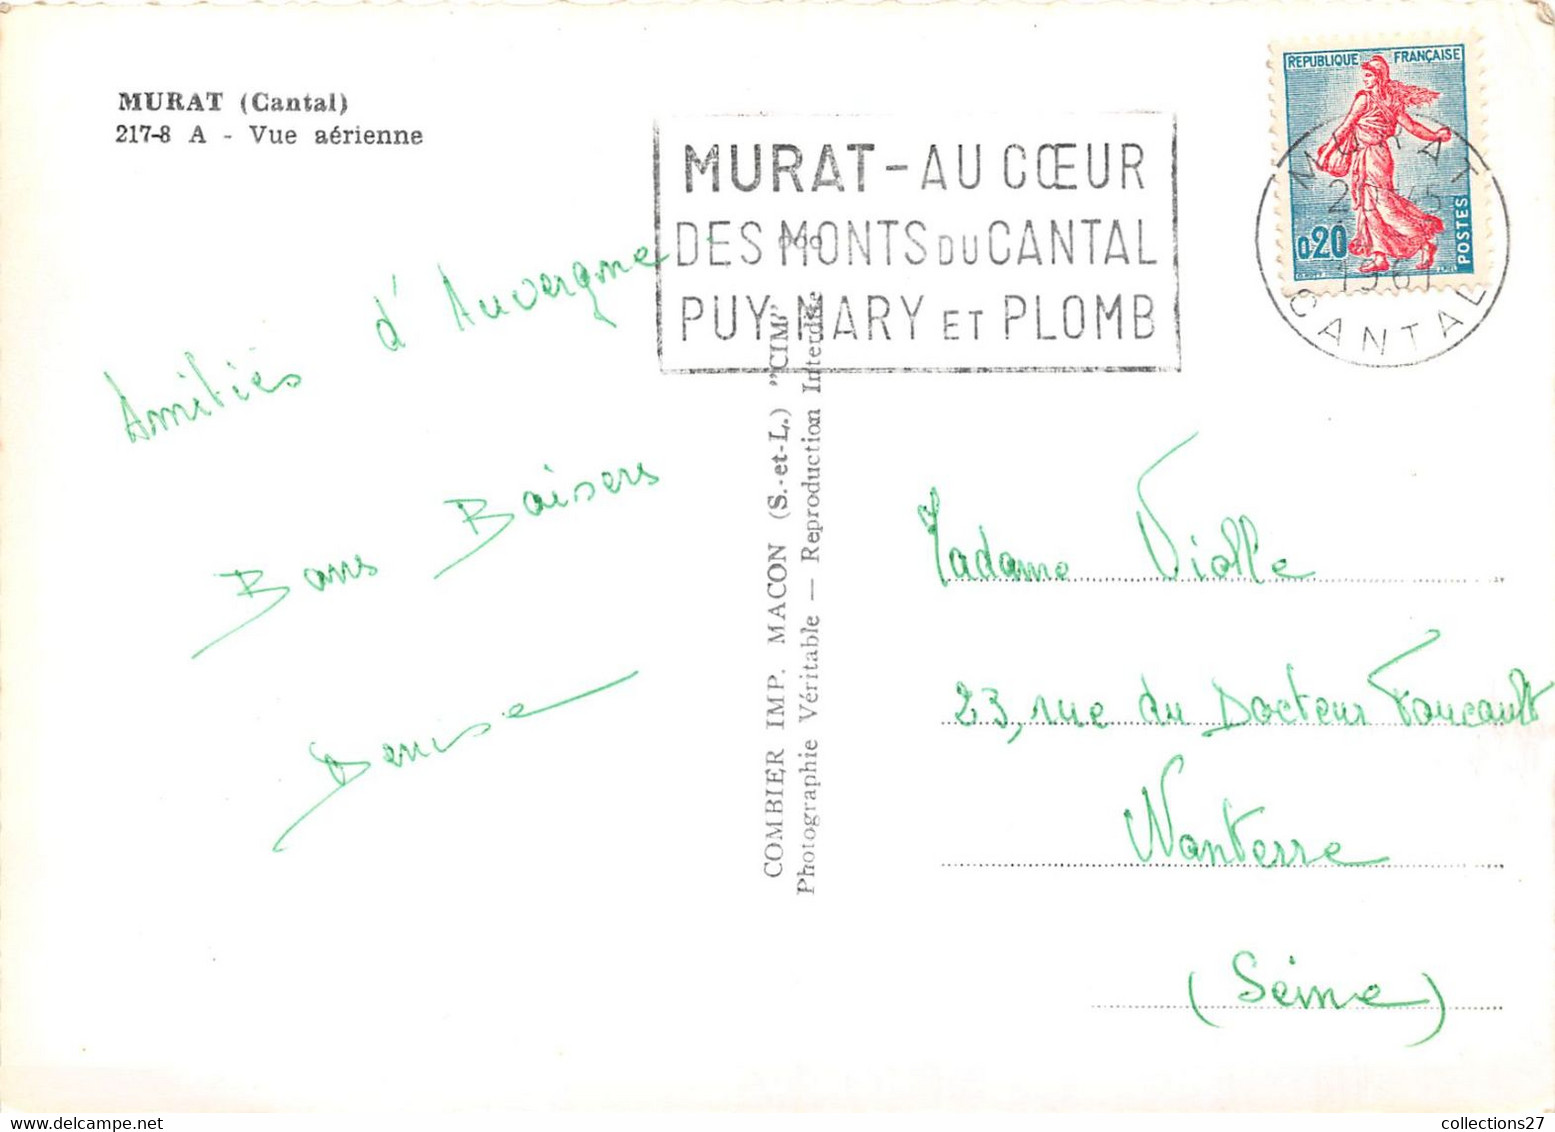 MURAT (Cantal)
217-8 A - Vue aérienne
MURAT - AU CŒUR
DES MONTS DU CANTAL
PUY MARY ET PLOMB
REPUBLIQUE FRANÇAISE
0,20
POSTES
MURAT
1961
CANTAL
Amitiés d'Auvergne
Bons Baisers
Denise
COMBIER IMP. MACON (S.-et-L.) "CIM"
Photographie Véritable — Reproduction Interdite
Madame Violle
23, rue du Docteur Foucault
Nanterre
(Seine)
collections27